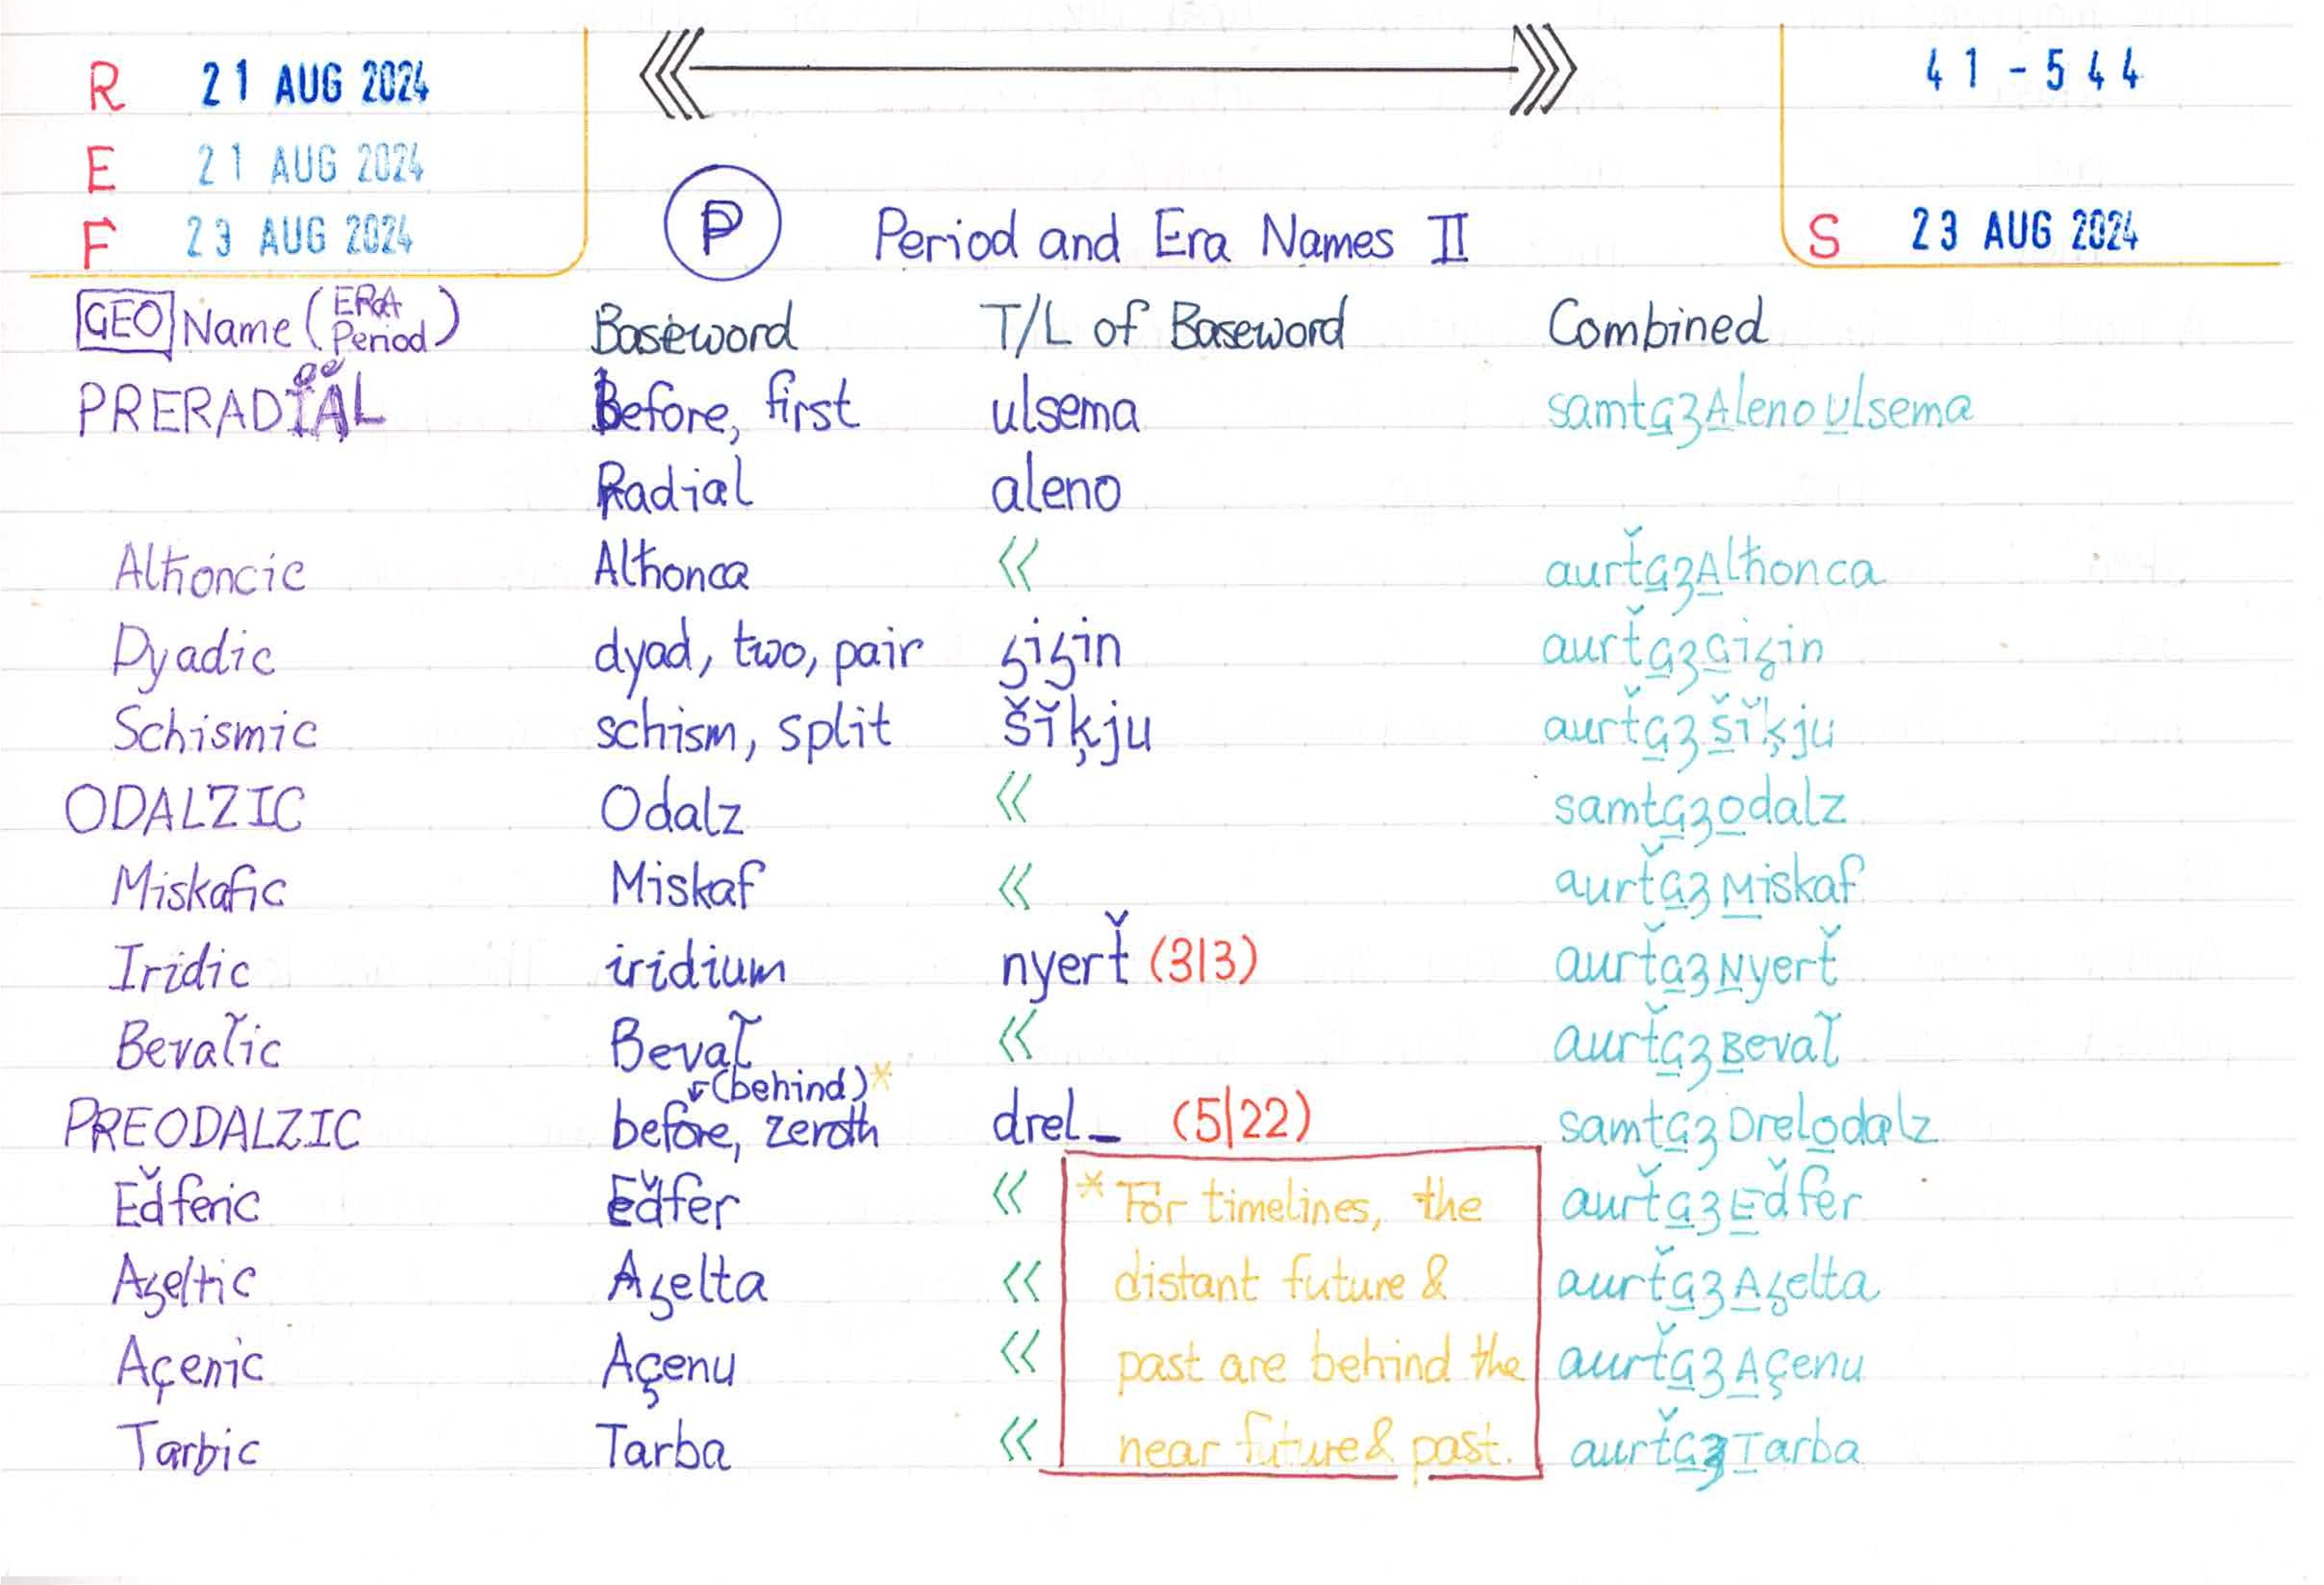 R 21 AUG 2024 41-544
E 21 AUG 2024
F 23 AUG 2024 P Period and Era Names II S 23 AUG 2024
GEO Name (ERA Period) Baseword T/L of Baseword Combined
PRERADIAL Before, first ulsema samtaʒAlenoUlsema
Radial aleno
Alħoncic Alħonca << aurťaʒAlħonca
Dyadic dyad, two, pair
Schismic schism, split šǐķju
ODALZIC Odalz << samtaʒOdalz
Miskafic Miskaf << aurťaʒMiskaf
Iridic iridium nyerť (313) aurťaʒNyerť
<< 
(behind)*
PREODALZIC before, zeroth drel_ (5|22) samtaʒDrelOdalz
Eďferic Eďfer << * For timelines, the aurťaʒEďfer
<< distant future &
Açenic Açenu << past are behind the aurťaʒAçenu
Tarbic Tarba << near future & past. aurťaʒTarba